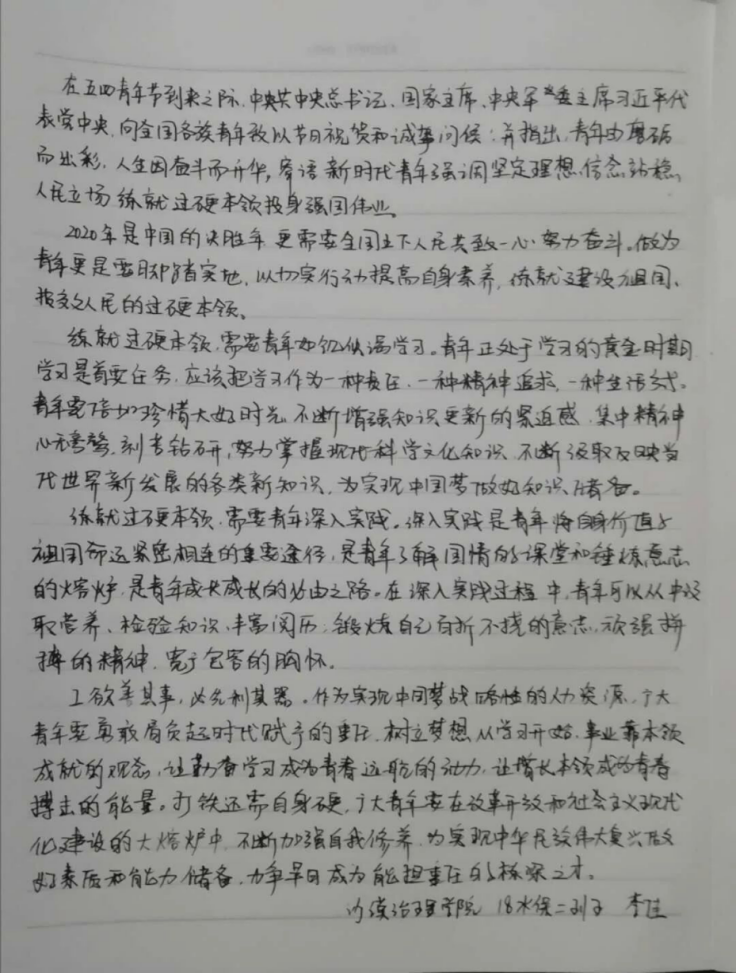 在五四青年节到来之际,中共中央总书记、国家主席、中央军委主席习近平代
表党中央,向全国各族青年致以节日祝贺和诚挚问候;并指出,青年由磨砺
而出彩,人生因奋斗而升华,寄语新时代青年强调坚定理想信念,站稳
人民立场,练就过硬本领,投身强国伟业。
2020年是中国的决胜年,更需要全国上下人民共致一心,努力奋斗。做为
青年更是要脚踏实地,以切实行动提高自身素养,练就建设祖国、
报效人民的过硬本领。
练就过硬本领,需要青年如饥似渴学习。青年正处于学习的黄金时期
学习是首要任务,应该把学习作为一种责任、一种精神追求、一种生活方式。
青年要倍加珍惜大好时光,不断增强知识更新的紧迫感,集中精神
心无旁骛,刻苦钻研,努力掌握现代科学文化知识,不断汲取反映当
代世界新发展的各类新知识,为实现中国梦做好知识储备。
练就过硬本领,需要青年深入实践。深入实践是青年将自身价值与
祖国命运紧密相连的重要途径,是青年了解国情的课堂和锤炼意志
的熔炉,是青年成长成长的必由之路。在深入实践过程中,青年可以从中汲
取营养、检验知识、丰富阅历,锻炼自己百折不挠的意志,顽强拼
搏的精神,宽广包容的胸怀。
工欲善其事,必先利其器。作为实现中国梦战略性的人力资源,广大
青年要勇敢肩负起时代赋予的重任,树立梦想从学习开始,事业靠本领
成就的观念,让勤奋学习成为青春远航的动力,让增长本领成为青春
搏击的能量。打铁还需自身硬,广大青年要在改革开放和社会主义现代
化建设的大熔炉中,不断加强自我修养,为实现中华民族伟大复兴做
好素质和能力储备,力争早日成为能担重任的栋梁之才。
沙漠治理学院 18水保二班 李佳